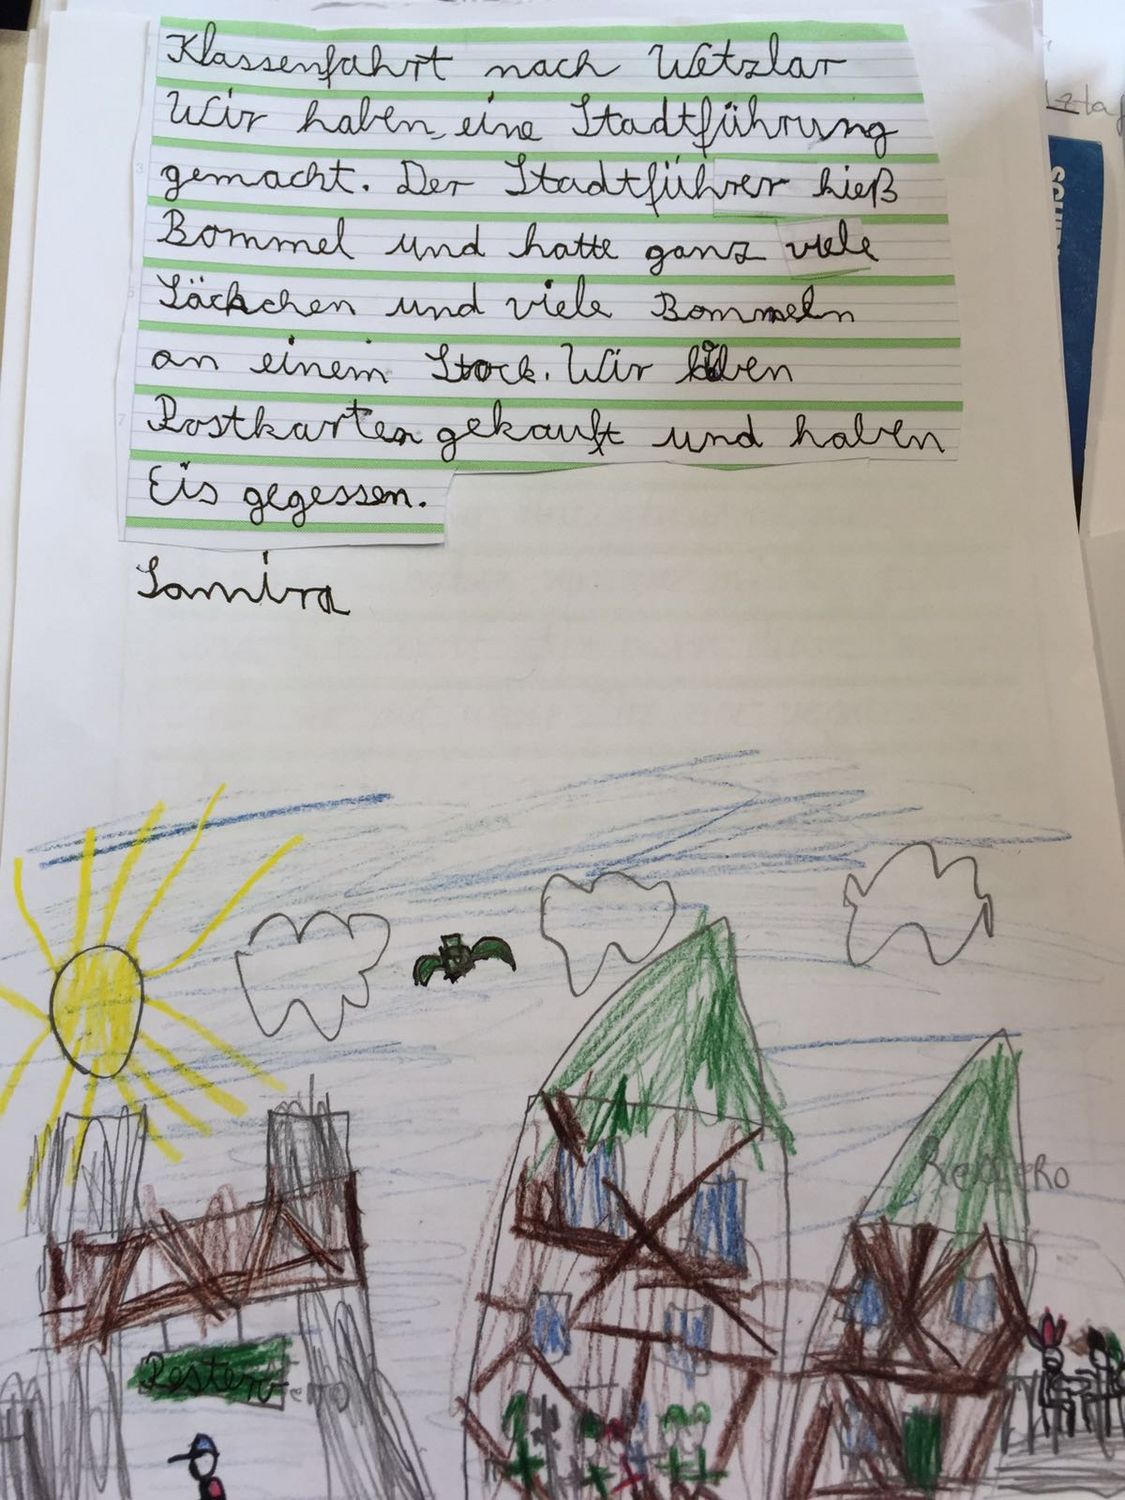 Klassenfahrt nach Wetzlar
Wir haben eine Stadtführung
gemacht. Der Stadtführer hieß
Bommel und hatte ganz viele
Säckchen und viele Bommeln
an einem Stock. Wir haben
Postkarten gekauft und haben
Eis gegessen.
Samira